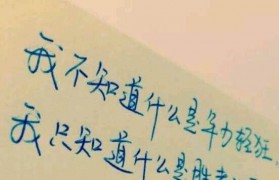 我不知道什么是年少轻狂
我只知道什么是胜者